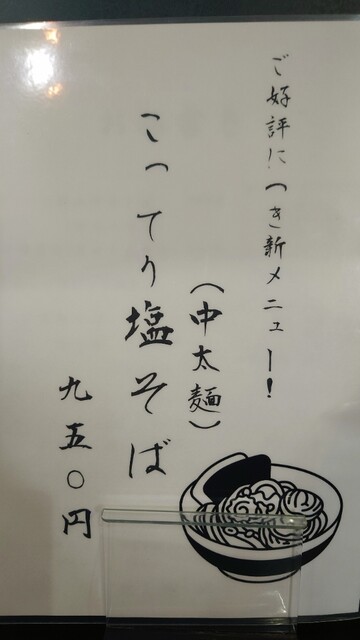 ご好評につき新メニュー!
こってり塩そば
(中太麺)
九五〇円